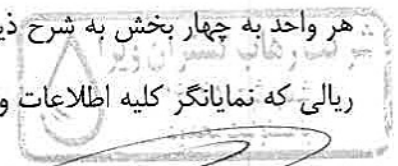 هر واحد به چهار بخش به شرح ذی
ریالی که نمایانگر کلیه اطلاعات و